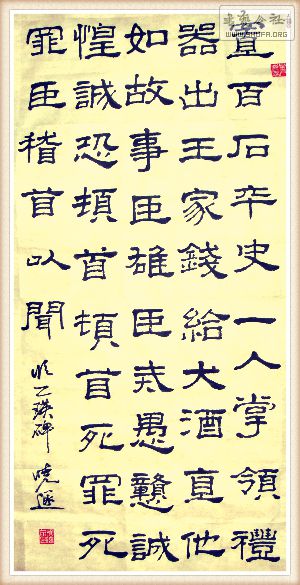 置百石卒史一人掌領禮
器出王家錢給犬酒直他
如故事臣雄臣戒愚戇誠
惶誠恐頓首頓首死罪死
罪臣稽首以聞
临乙瑛碑